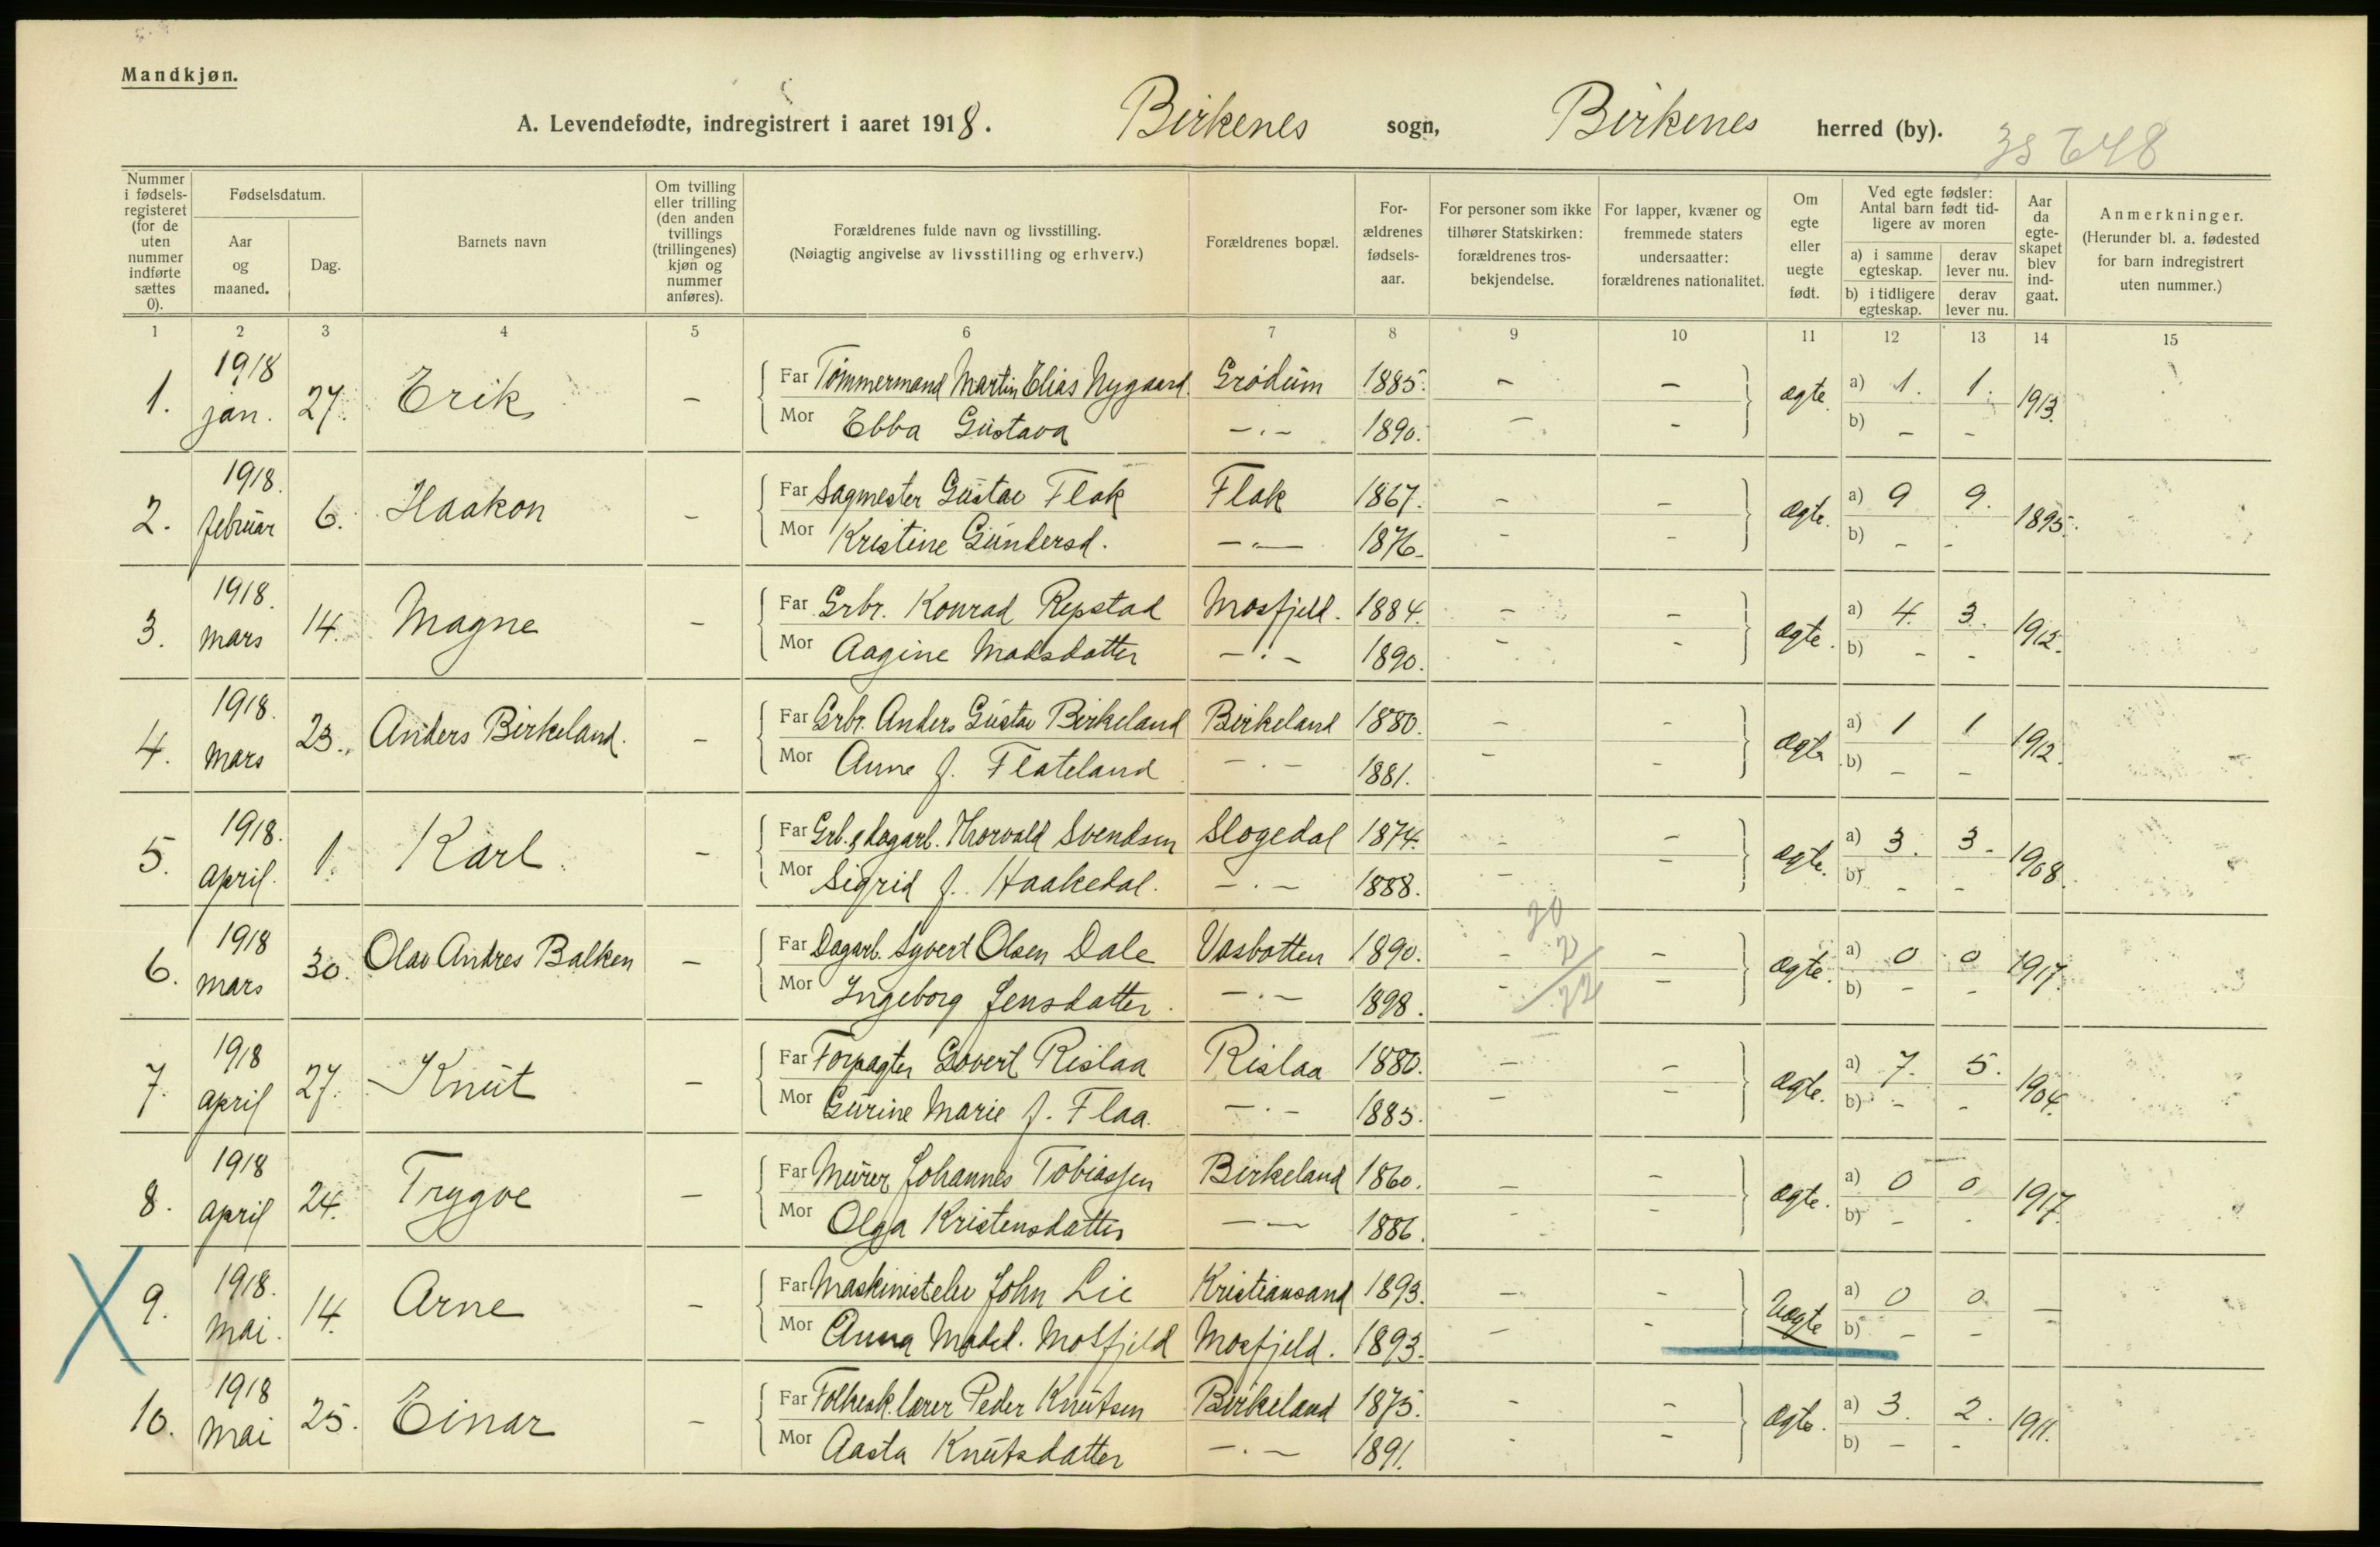 Mandkjøn.
A. Levendefødte, indregistrert i aaret 1918. Birkenes sogn, Birkenes herred (by).
Nummer i fødsels-registeret (for de uten nummer indførte sættes 0).
Fødselsdatum.
Aar og maaned.
Dag.
Barnets navn
Om tvilling eller trilling (den anden tvillings (trillingenes) kjøn og nummer anføres).
Forældrenes fulde navn og livsstilling.
(Nøiagtig angivelse av livsstilling og erhverv.)
Forældrenes bopæl.
For-ældrenes fødsels-aar.
For personer som ikke tilhører Statskirken: forældrenes tros-bekjendelse.
For lapper, kvæner og fremmede staters undersaatter: forældrenes nationalitet.
Om egte eller uegte født.
Ved egte fødsler: Antal barn født tid-ligere av moren
a) i samme egteskap. derav lever nu.
b) i tidligere egteskap. derav lever nu.
Aar da egte-skapet blev ind-gaat.
Anmerkninger.
(Herunder bl. a. fødested for barn indregistrert uten nummer.)
1 2 3 4 5 6 7 8 9 10 11 12 13 14 15
1. 1918 jan. 27. Erik - Far Tömmermand Martin Elias Nygaard. Grödum 1885. - - ægte a) 1. 1. 1913.
Mor Ebba Gustava -.- 1890. - - b) - -
2. 1918. februar 6. Haakon - Far Sagmester Gustav Flak Flak 1867. - - ægte. a) 9 9. 1895.
Mor Kristine Gundersd. -.- 1876. - - b) - -
3. 1918. mars 14. Magne - Far Grbr. Konrad Repstad Mosfjeld. 1884. - - ægte. a) 4. 3. 1912.
Mor Aagine Madsdatter -.- 1890. - - b) - -
4. 1918. mars 23. Anders Birkeland. - Far Grbr. Anders Gustav Birkeland Birkeland 1880. - - ægte a) 1 1 1912.
Mor Anne f. Flateland -.- 1881. - - b) - -
5. 1918. april. 1. Karl - Far Grb. & dagarb. Thorvald Svendsen Slogedal 1874. - - ægte. a) 3. 3. 1908.
Mor Sigrid f. Haakedal. -.- 1888. - - b) - -
6. 1918 mars 30. Olav Andres Balken - Far Dagarb. Syvert Olsen Dale Vasbotten 1890. - - ægte. a) 0 0 1917.
Mor Ingeborg Jensdatter. -.- 1898. - - b) - -
7. 1918 april 27. Knut - Far Forpagter Govert Rislaa Rislaa 1880. - - ægte. a) 7. 5. 1904.
Mor Gurine Marie f. Flaa. -.- 1885. - - b) - -
8. 1918 april 24. Trygve - Far Murer Johannes Tobiassen Birkeland 1860. - - ægte. a) 0 0 1917.
Mor Olga Kristensdatter -- 1886. - - b) - -
9. 1918. mai. 14. Arne - Far Maskinistelev John Lie Kristiansand 1893. - - Uægte a) 0 0. -
Mor Anna Mosfjeld Mosfjeld. 1893. - - b) - -
10. 1918 mai 25. Einar - Far Folkesk.lærer Peder Knutsen Birkeland 1875. - - ægte. a) 3. 2. 1911.
Mor Aasta Knutsdatter -.- 1891. - - b) - -